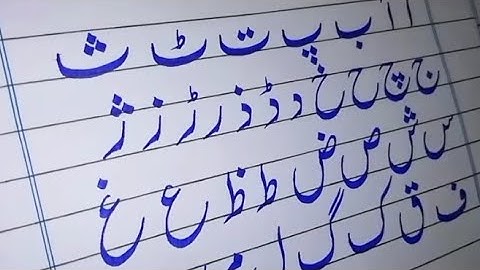 ا ا ب پ ت ٹ ث
ج چ ح خ د ڈ ذ ر ڑ ز ژ
س ش ص ض ط ظ ع غ
ف ق ک گ ل م